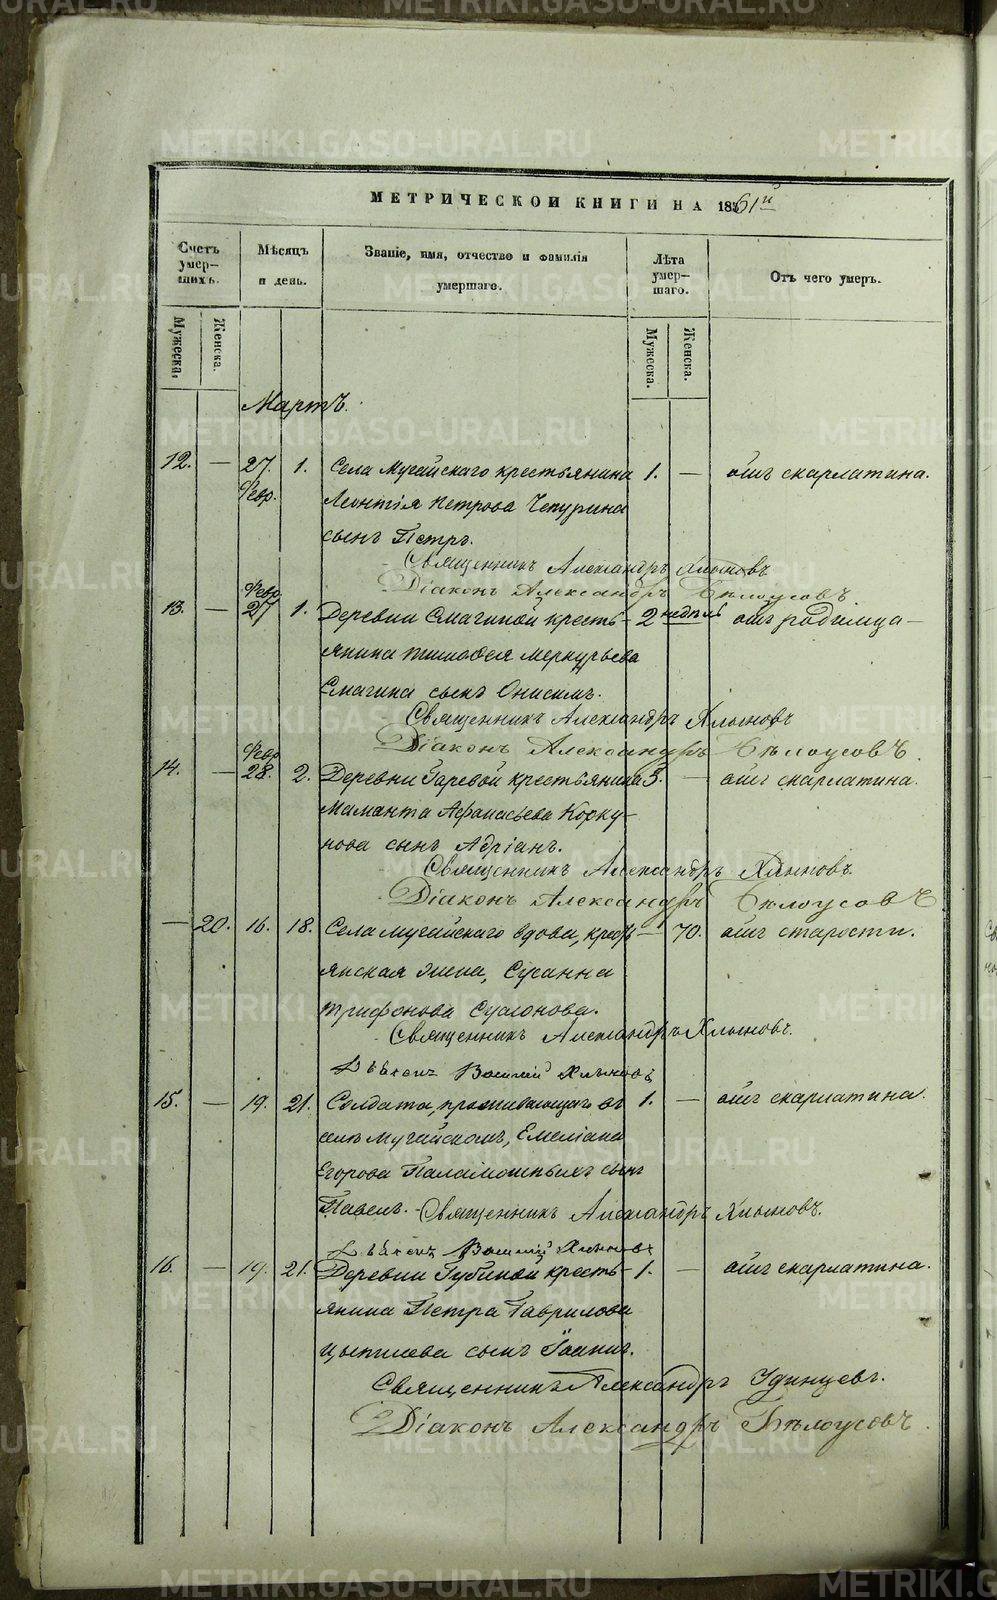 МЕТРИЧЕСКОЙ КНИГИ НА 1861й
Счетъ умерших. Мѣсяцъ и день. Званіе, имя, отчество и фамилія умершаго. Лѣта умершаго. Отъ чего умеръ.
Мужеска. Женска. Мужеска. Женска.
Мартъ.
12. — 27. 1. Села Мугайскаго крестьянина 1. — отъ скарлатина.
Февр. Леонтія Петрова Чепурина
сынъ Петръ.
Священникъ Александръ Хлыновъ
Діаконъ Александръ Бѣлоусовъ.
Февр.
13. — 27 1. Деревни Смагиной кресть- 2 недѣл. отъ родимца —
янина Тимофея Меркурьева
Смагина сынъ Онисимъ.
Священникъ Александръ Хлыновъ
Діаконъ Александръ Бѣлоусовъ.
Февр
14. — 28. 2. Деревни Гаревой крестьянина 5. — отъ скарлатина.
Маманта Афанасьева Корку-
нова сынъ Адріанъ.
Священникъ Александръ Хлыновъ.
Діаконъ Александръ Бѣлоусовъ
— 20. 16. 18. Села Мугайскаго вдова, кресть- — 70. отъ старости.
янская жена, Сусанна
Трифонова
Священникъ Александръ Хлыновъ.
Василій Хлыновъ
15. — 19. 21. Солдата, проживающаго въ 1. — отъ скарлатина.
селѣ Мугайскомъ, Емеліана
Егорова Паламошныхъ сынъ
Павелъ. - Священникъ Александръ Хлыновъ.
Василій Хлыновъ
16. — 19. 21. Деревни Губиной кресть- 1. — отъ скарлатина.
янина Петра Гаврилова
сынъ Іоаннъ.
Священникъ Александръ Удинцевъ.
Діаконъ Александръ Бѣлоусовъ.
METRIKI.GASO-URAL.RU